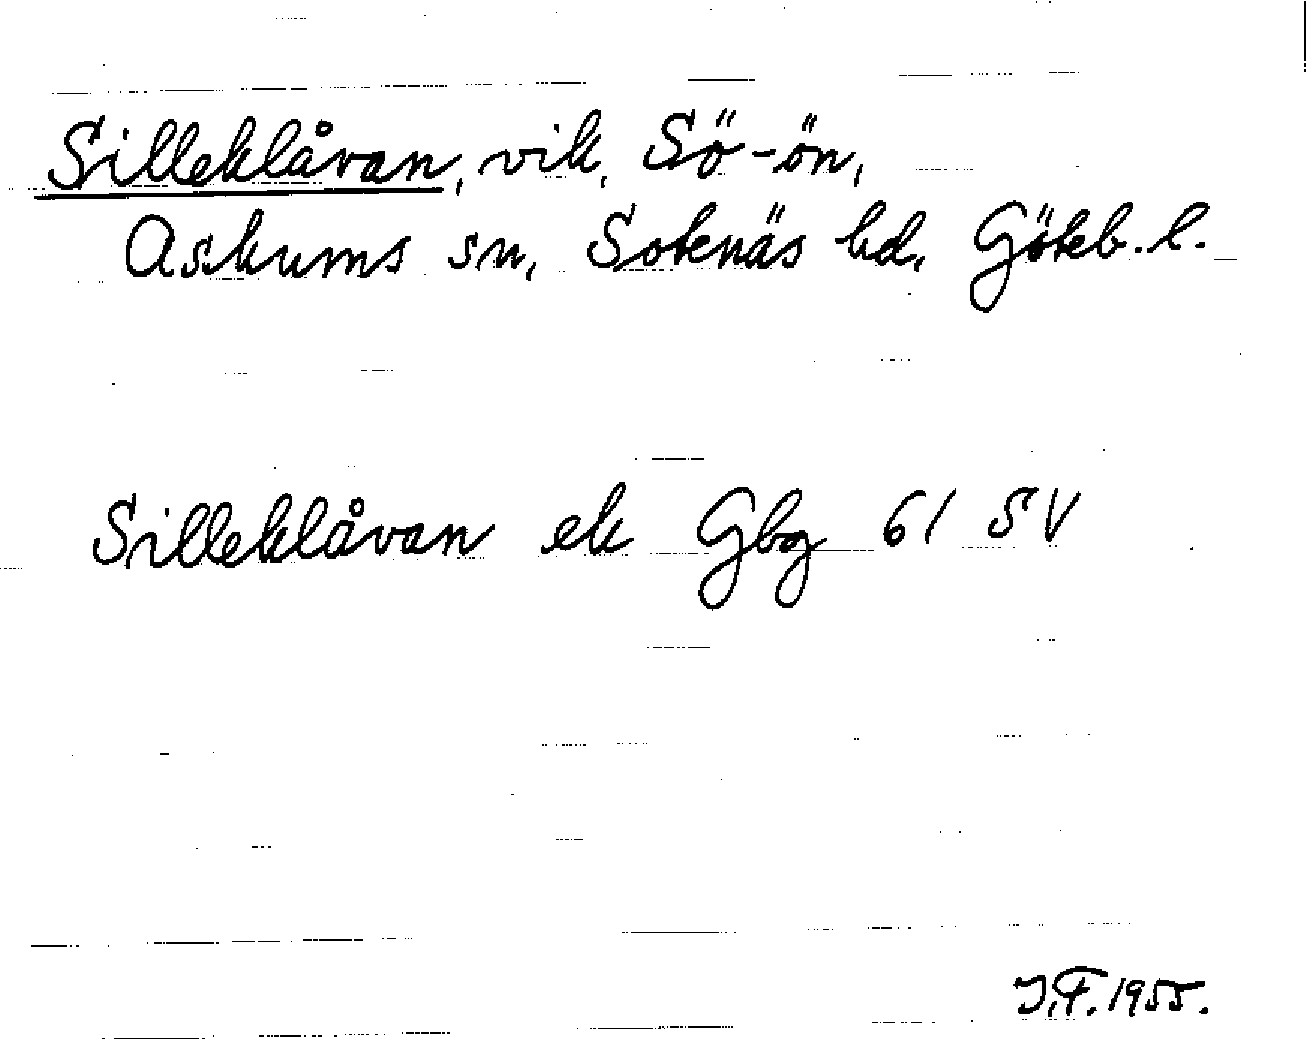 Silleklåvan, vik, Sö-ön,
Askums sn, Sotenäs hd, Göteb. l.
Silleklåvan ek Gbg 61 SV
J.F. 1955.